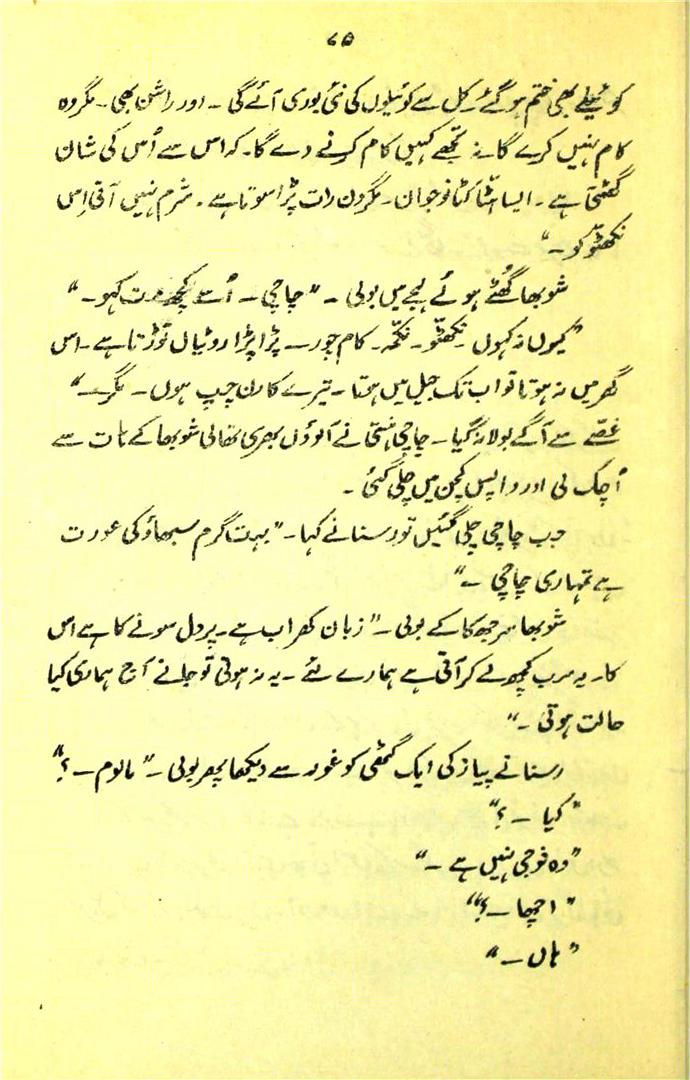 ۷۵
کوئیلے بھی ختم ہو گئے۔ کل سے کوئیلوں کی نئی بوری آئے گی ۔ اور راشن بھی ۔ مگر وہ
کام نہیں کرے گا نہ تجھے کہیں کام کرنے دے گا۔ کہ اس سے اُس کی شان
گھٹتی ہے ۔ ایسا ہٹّا کٹّا نوجوان ۔ مگر دن رات پڑا سوتا ہے ۔ شرم نہیں آتی اِس
نکھٹّو کو ۔"
شوبھا گھُٹے ہوئے لہجے میں بولی ۔ "چاچی ۔ اُسے کچھ مت کہو ۔"
"کیوں نہ کہوں نکھٹّو ۔ نکمّہ ۔ کام چور ۔ پڑا پڑا روٹیاں توڑتا ہے ۔ اس
گھر میں نہ ہوتا تو اب تک جیل میں ہوتا ۔ تیرے کارن چپ ہوں ۔ مگر ۔"
غصّے سے آگے بولا نہ گیا ۔ چاچی ہنستی نے آلوؤں بھری تھالی شوبھا کے ہات سے
اُچک لی اور واپس کچن میں چلی گئی ۔
جب چاچی چلی گئیں تو رسنا نے کہا ۔ "بہت گرم سبھاؤ کی عورت
ہے تمہاری چاچی ۔"
شوبھا سر جھکا کے بولی ۔ "زبان کھراب ہے ۔ پر دل سونے کا ہے اس
کا۔ یہ سب کچھ لے کر آتی ہے ہمارے لئے ۔ یہ نہ ہوتی تو جانے آج ہماری کیا
حالت ہوتی ۔"
رسنا نے پیاز کی ایک گٹھی کو غور سے دیکھا پھر بولی ۔ "مالوم ۔ ؟"
"کیا ۔ ؟"
"وہ فوجی نہیں ہے ۔"
"اچھا ۔ ؟"
"ہاں ۔"